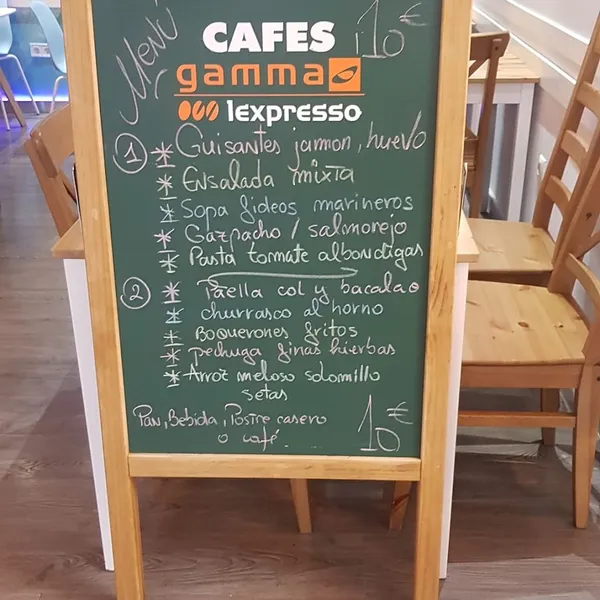 Menú
CAFES
¡10€
gamma
lexpresso
1 * Guisantes jamon, huevo
* Ensalada mixta
* Sopa fideos marineros
* Gazpacho / salmorejo
* Pasta tomate albondigas
2 * Paella col y bacalao
* churrasco al horno
* Boquerones fritos
* Pechuga finas hierbas
* Arroz meloso solomillo
setas
Pan, Bebida, Postre casero
o café.
10€